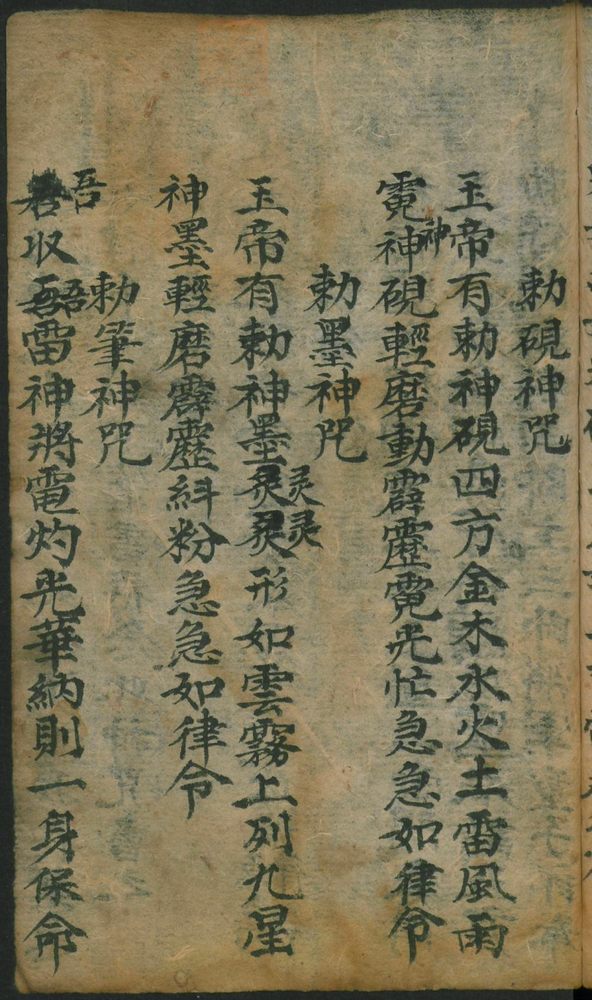 勅硯神咒
玉帝有勅神硯四方金木水火土雷風雨
霓神硯輕磨動霹靂霓光忙急急如律令
神
勅墨神咒
玉帝有勅神墨炅炅形如雲霧上列九星
灵灵
神墨輕磨霹靂糾粉急急如律令
勅筆神咒
吾
收雷神將電灼光華納則一身保命